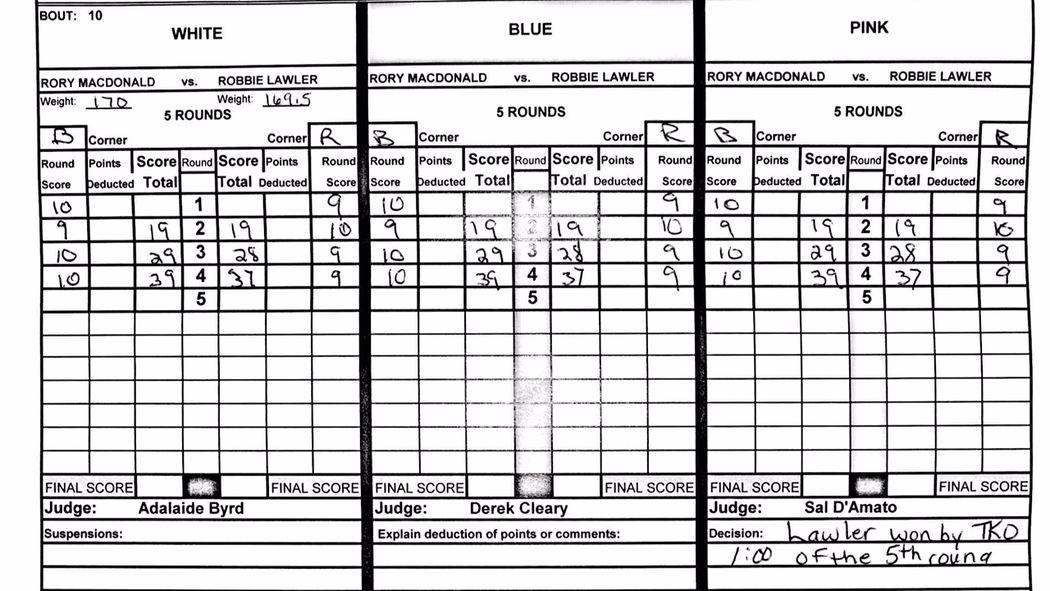 BOUT: 10
WHITE BLUE PINK
RORY MACDONALD vs. ROBBIE LAWLER RORY MACDONALD vs. ROBBIE LAWLER RORY MACDONALD vs. ROBBIE LAWLER
Weight: 170 Weight: 169.5
5 ROUNDS 5 ROUNDS 5 ROUNDS
B Corner Corner R B Corner Corner R B Corner Corner R
Round Points Score Round Score Points Round Round Points Score Round Score Points Round Round Points Score Round Score Points Round
Score Deducted Total Total Deducted Score Score Deducted Total Total Deducted Score Score Deducted Total Total Deducted Score
10 1 9 10 1 9 10 1 9
9 19 2 19 10 9 19 2 19 10 9 19 2 19 10
10 29 3 28 9 10 29 3 28 9 10 29 3 28 9
10 39 4 37 9 10 39 4 37 9 10 39 4 37 9
5 5 5
FINAL SCORE FINAL SCORE FINAL SCORE FINAL SCORE FINAL SCORE FINAL SCORE
Judge: Adalaide Byrd Judge: Derek Cleary Judge: Sal D'Amato
Suspensions: Explain deduction of points or comments: Decision: Lawler won by TKO
1:00 of the 5th round